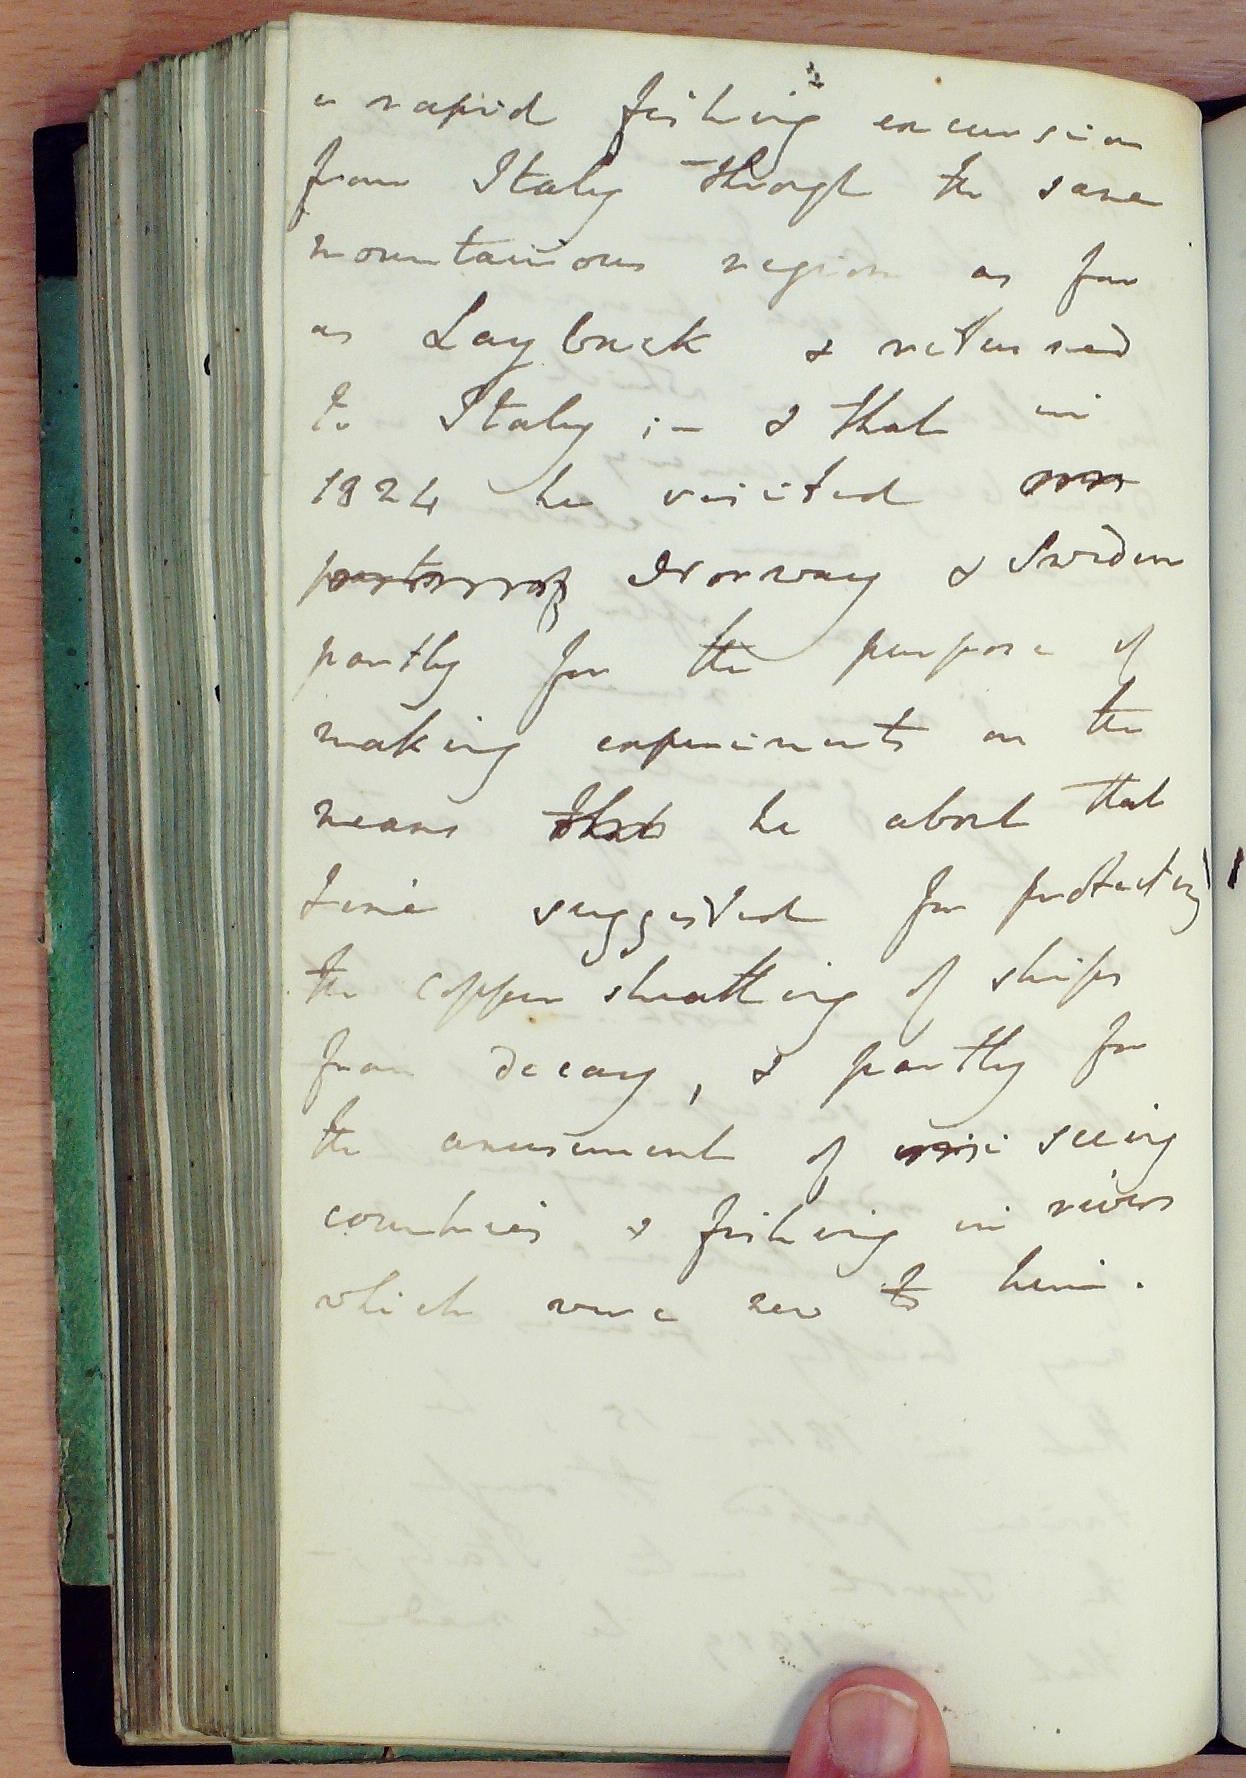 a rapid fishing excursion
from Italy through the same
mountainous region as far
as Layback & returned
to Italy ;- & that in
1824 he visited
parts of Norway & Sweden
partly for the purpose of
making experiments on the
means that he about that
time suggested for protecting
the copper sheathing of ships
from decay, & partly for
the amusement of seeing
countries & fishing in rivers
which were new to him.